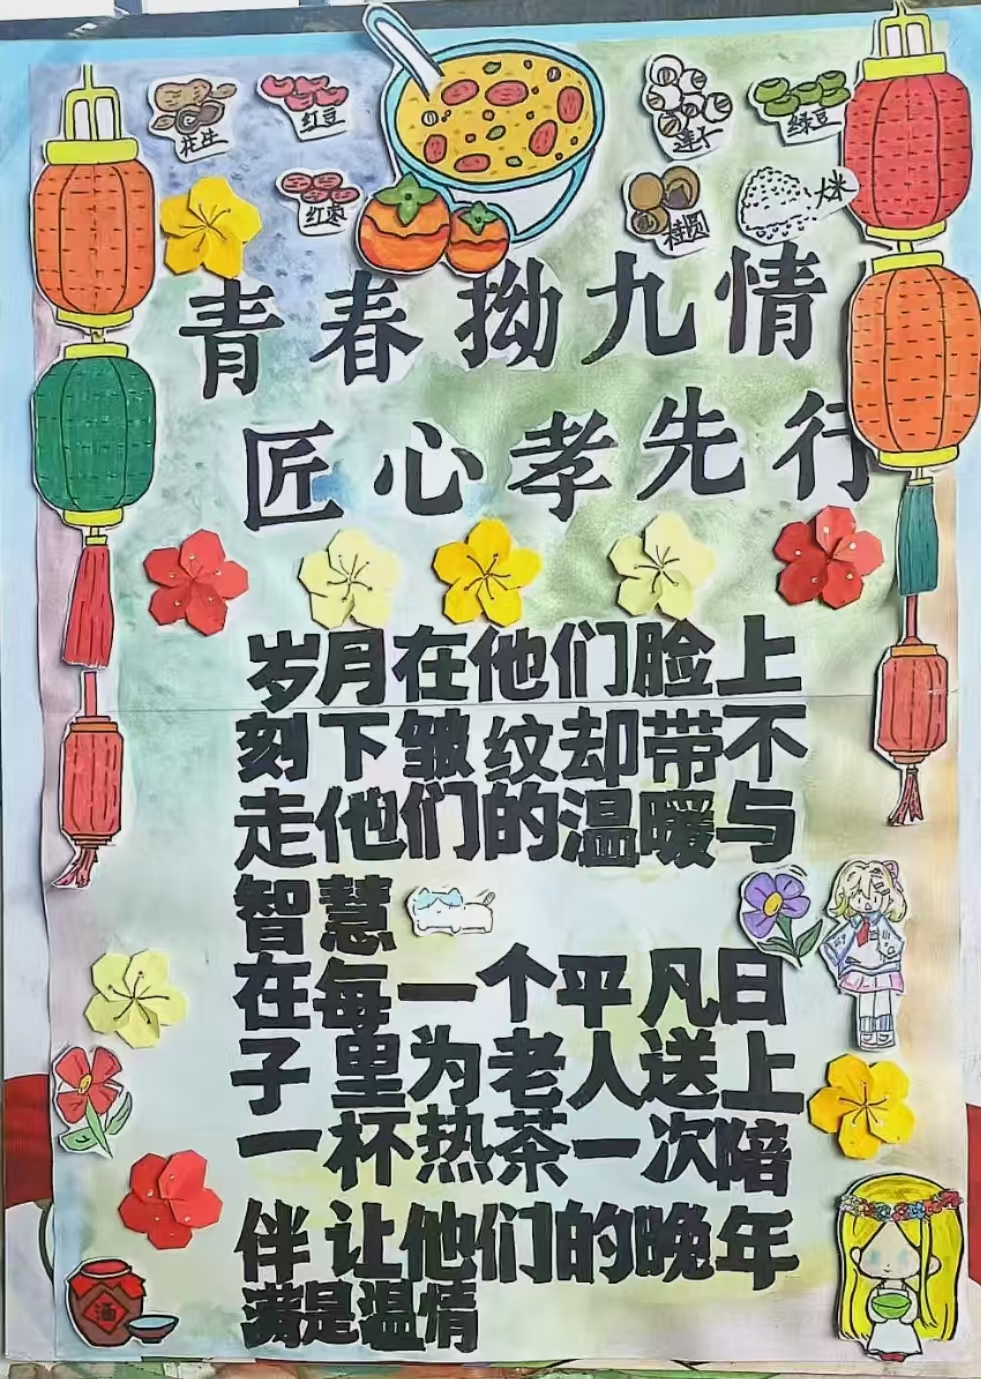 花生
红豆
莲子
绿豆
红枣
桂圆
大米
青春拗九情
匠心孝先行
岁月在他们脸上
刻下皱纹却带不
走他们的温暖与
智慧
在每一个平凡日
子里为老人送上
一杯热茶一次陪
伴让他们的晚年
满是温情
酒